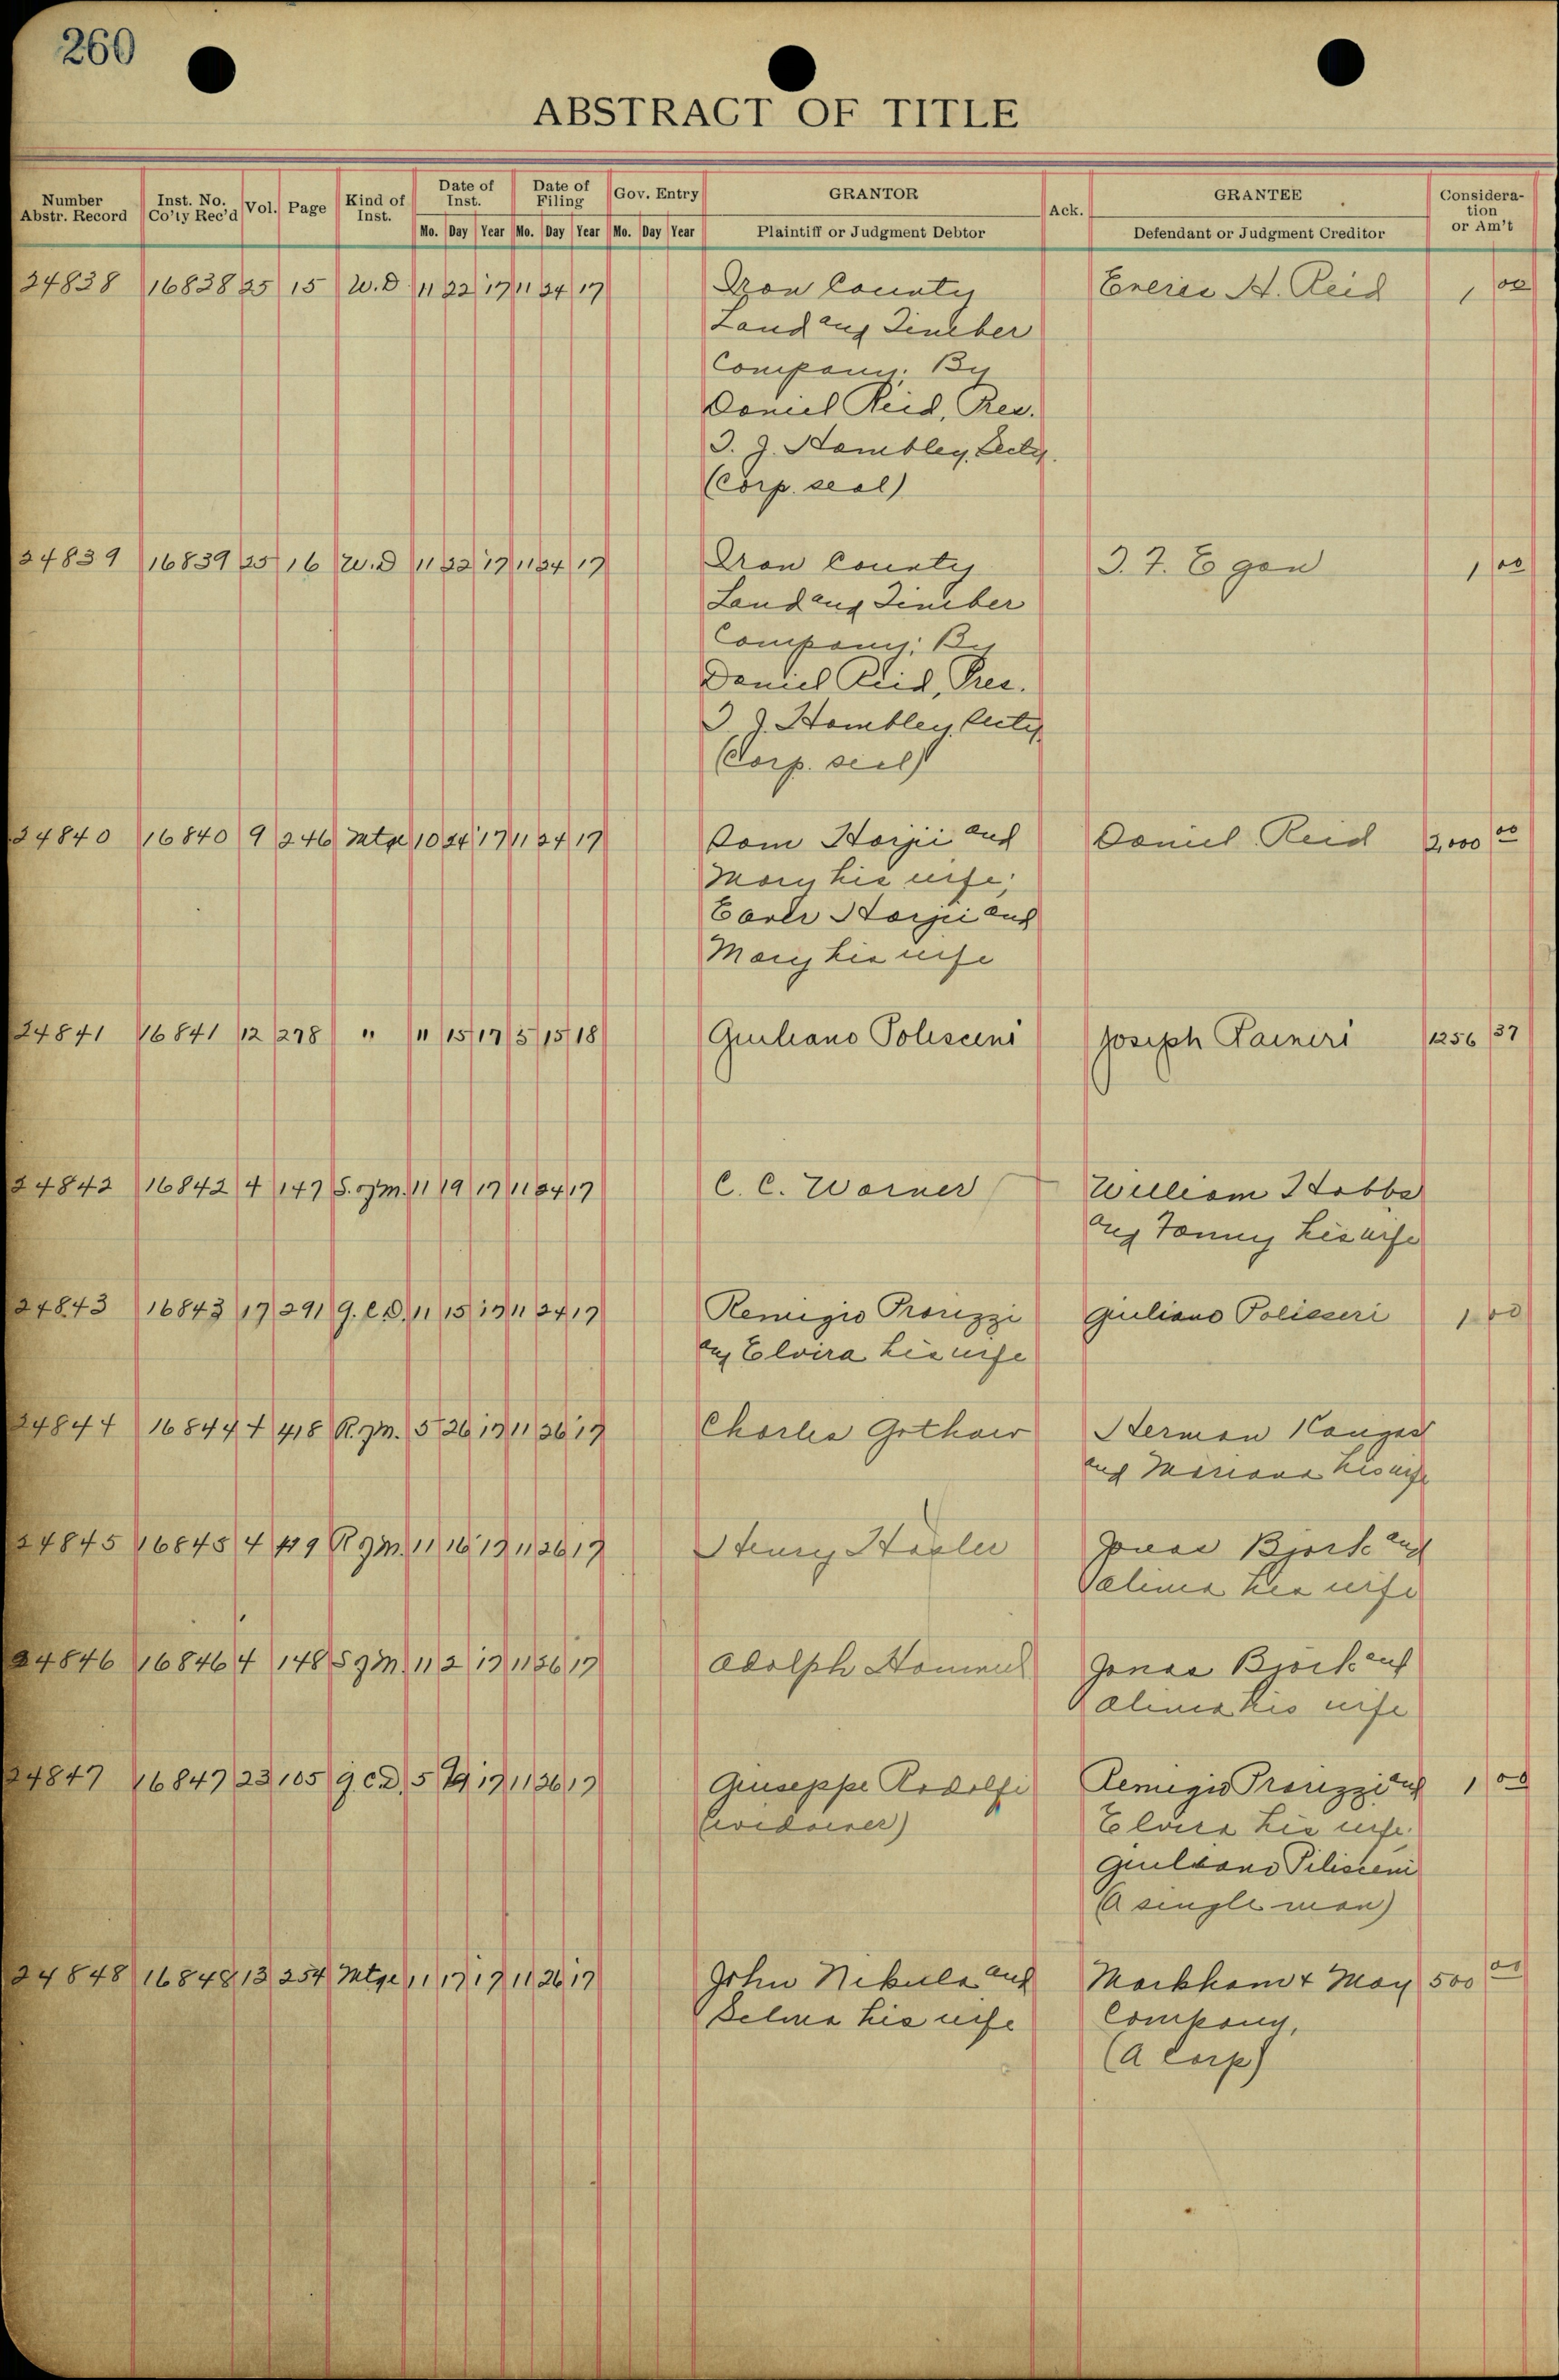 260
ABSTRACT OF TITLE
Number Abstr. Record Inst. No. Co'ty Rec'd Vol. Page Kind of Inst. Date of Inst. Date of Filing Gov. Entry GRANTOR Ack. GRANTEE Considera-tion or Am't
Mo. Day Year Mo. Day Year Mo. Day Year Plaintiff or Judgment Debtor Defendant or Judgment Creditor
24838 16838 25 15 W.D 11 22 17 11 24 17 Iron County H. Reid 1 00
Land and Timber
Company. By
Daniel Reid, Pres.
J. Hambley, Secty.
(Corp. seal)
24839 16839 25 16 W.D 11 22 17 11 24 17 Iron County Egan 1 00
Land and Timber
Company: By
Daniel Reid, Pres.
J. Hambley, Secty
(Corp. seal)
24840 16840 9 246 Mtge 10 24 17 11 24 17 and Daniel Reid 2,000 00
Mary his wife;
and
Mary his wife
24841 16841 12 278 " 11 15 17 5 15 18 Giuliano Polisceni Joseph Raineri 1256 37
24842 16842 4 147 S. of M. 11 19 17 11 24 17 C. C. Warner William Hobbs
and Fanny his wife
24843 16843 17 291 Q.C.D. 11 15 17 11 24 17 Remigio Prorizzi Giuliano Polisseri 1 00
and Elvira his wife
24844 16844 4 418 R. of M. 5 26 17 11 26 17 Charles Herman Kangas
and his wife
24845 16845 4 419 R of M. 11 16 17 11 26 17 Henry Jonas Bjork and
his wife
24846 16846 4 148 S of M. 11 2 17 11 26 17 Adolph Jonas Bjork and
his wife
24847 16847 23 105 Q.C.D. 5 19 17 11 26 17 Giuseppe Rodolfi Remigio Prorizzi and 1 00
(widower) Elvira his wife.
Giuliano Pilisceni
(A single man)
24848 16848 13 254 Mtge 11 17 17 11 26 17 John Nikula and Markham & May 500 00
Selma his wife Company,
(A Corp)